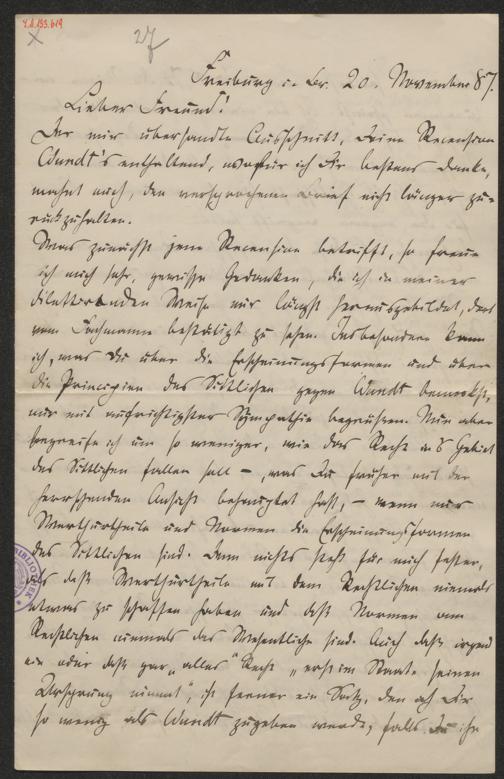 4.A.193.619
27
Freiburg i. Br. 20. November 87.
Lieber Freund!
Der mir übersandte Ausschnitt, Deine Recension
Wundt's enthaltend, wofür ich Dir bestens danke,
mahnt mich, den versprochenen Brief nicht länger zu-
rückzuhalten.
Was zunächst jene Recension betrifft, so freue
ich mich sehr, gewisse Gedanken, die ich in meiner
dilettirenden Weise mir längst herausgebildet, dort
vom Fachmanne bestätigt zu sehen. Insbesondere kann
ich, was Du über die Erscheinungsformen und über
die Principien des Sittlichen gegen Wundt bemerkst,
nur mit aufrichtigster Sympathie begrüssen. Nun aber
begreife ich um so weniger, wie das Recht in's Gebiet
des Sittlichen fallen soll –, was Du früher mit der
herrschenden Ansicht behauptet hast, – wenn nur
Werthurtheile und Normen die Erscheinungsformen
des Sittlichen sind. Denn nichts steht für mich fester,
als daß Werthurtheile mit dem Rechtlichen niemals
etwas zu schaffen haben und daß Normen am
Rechtlichen niemals das Wesentliche sind. Auch daß irgend
ein oder daß gar „alles" Recht „erst im Staate seinen
Ursprung nimmt", ist ferner ein Satz, den ich Dir
so wenig als Wundt zugeben werde, falls Du ihn